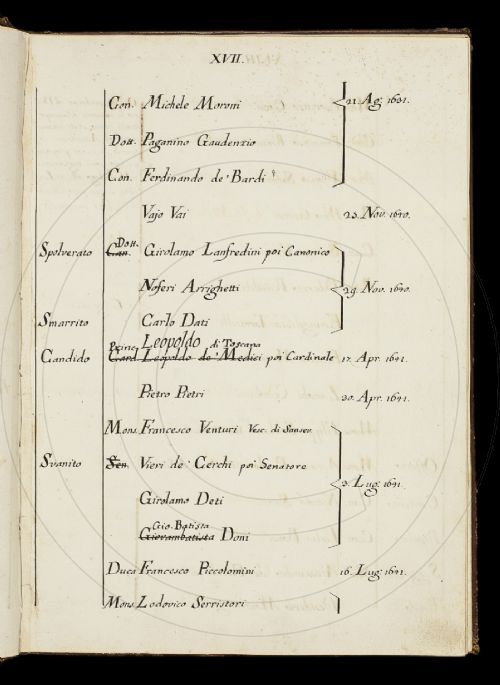 XVII.
Con. Michele Moroni
21. Ag. 1631.
Dott. Paganino Gaudenzio
Con. Ferdinando de' Bardi
Vajo Vai 23. Nov. 1640.
Dott.
Spolverato Can. Girolamo Lanfredini poi Canonico
Noferi Arrighetti 29. Nov. 1640.
Smarrito Carlo Dati
Princ. Leopoldo di Toscana
Candido Card. Leopoldo de' Medici poi Cardinale 17. Apr. 1641.
Pietro Pietri 20. Apr. 1641.
Mons. Francesco Venturi Vesc. di Sansev.
Svanito Sen. Vieri de' Cerchi poi Senatore
3. Lug. 1641.
Girolamo Deti
Gio. Batista
Giovambatista Doni
Duca Francesco Piccolomini 16. Lug. 1641.
Mons. Lodovico Serristori